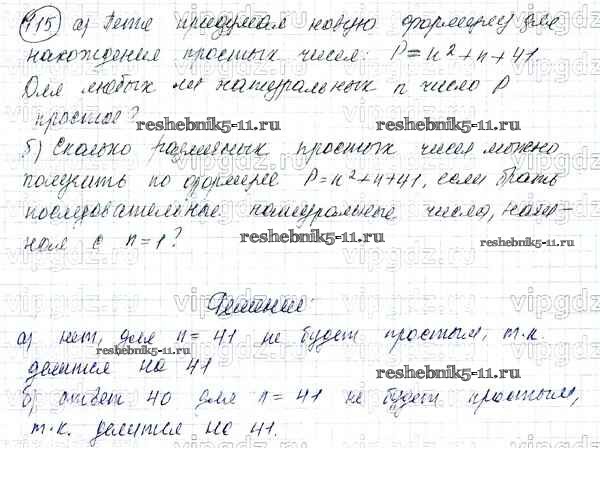 915) а) Петя придумал новую формулу для
нахождения простых чисел: P=n²+n+41
Для любых ли натуральных n число P
простое?
reshebnik5-11.ru reshebnik5-11.ru
б) Сколько различных простых чисел можно
получить по формуле P=n²+n+41, если брать
последовательные натуральные числа, начи-
ная с n=1?
reshebnik5-11.ru reshebnik5-11.ru
Решение:
а) нет, для n=41 не будет простым, т.к.
reshebnik5-11.ru reshebnik5-11.ru
делится на 41
б) ответ 40 для n=41 не будет простым,
reshebnik5-11.ru
т.к. делится на 41.